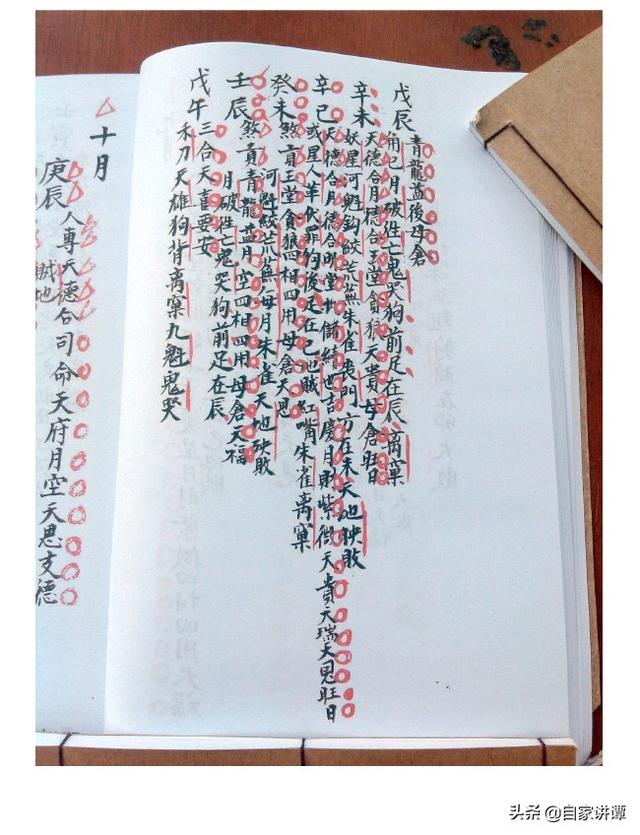 戊辰
青龍益後母倉
角巳月破往亡鬼哭狗前足在辰离窠
辛未
天德合月德合玉堂貪狼天貴母倉旺日
妖星河魁鈎鮫芒蕪朱雀喪門方在未天地殃敗
辛巳
天德合月德合明堂
續世吉慶月財紫微天貴天瑞天恩旺日
或星人革伏罪狗後足在巳地賊紅嘴朱雀离窠
癸未
煞貢玉堂貪狼四相四用母倉天恩
河魁鮫芒蕪每月朱雀天地殃敗
壬辰
煞貢青龍益月空四相四用母倉天福
月破往亡鬼哭狗前足在辰
戊午
三合天喜要安
禾刀天雄狗背离窠九魁鬼哭
十月
庚辰
人專天德合司命天府月空天恩支德
賊地
头条 @自家讲谭